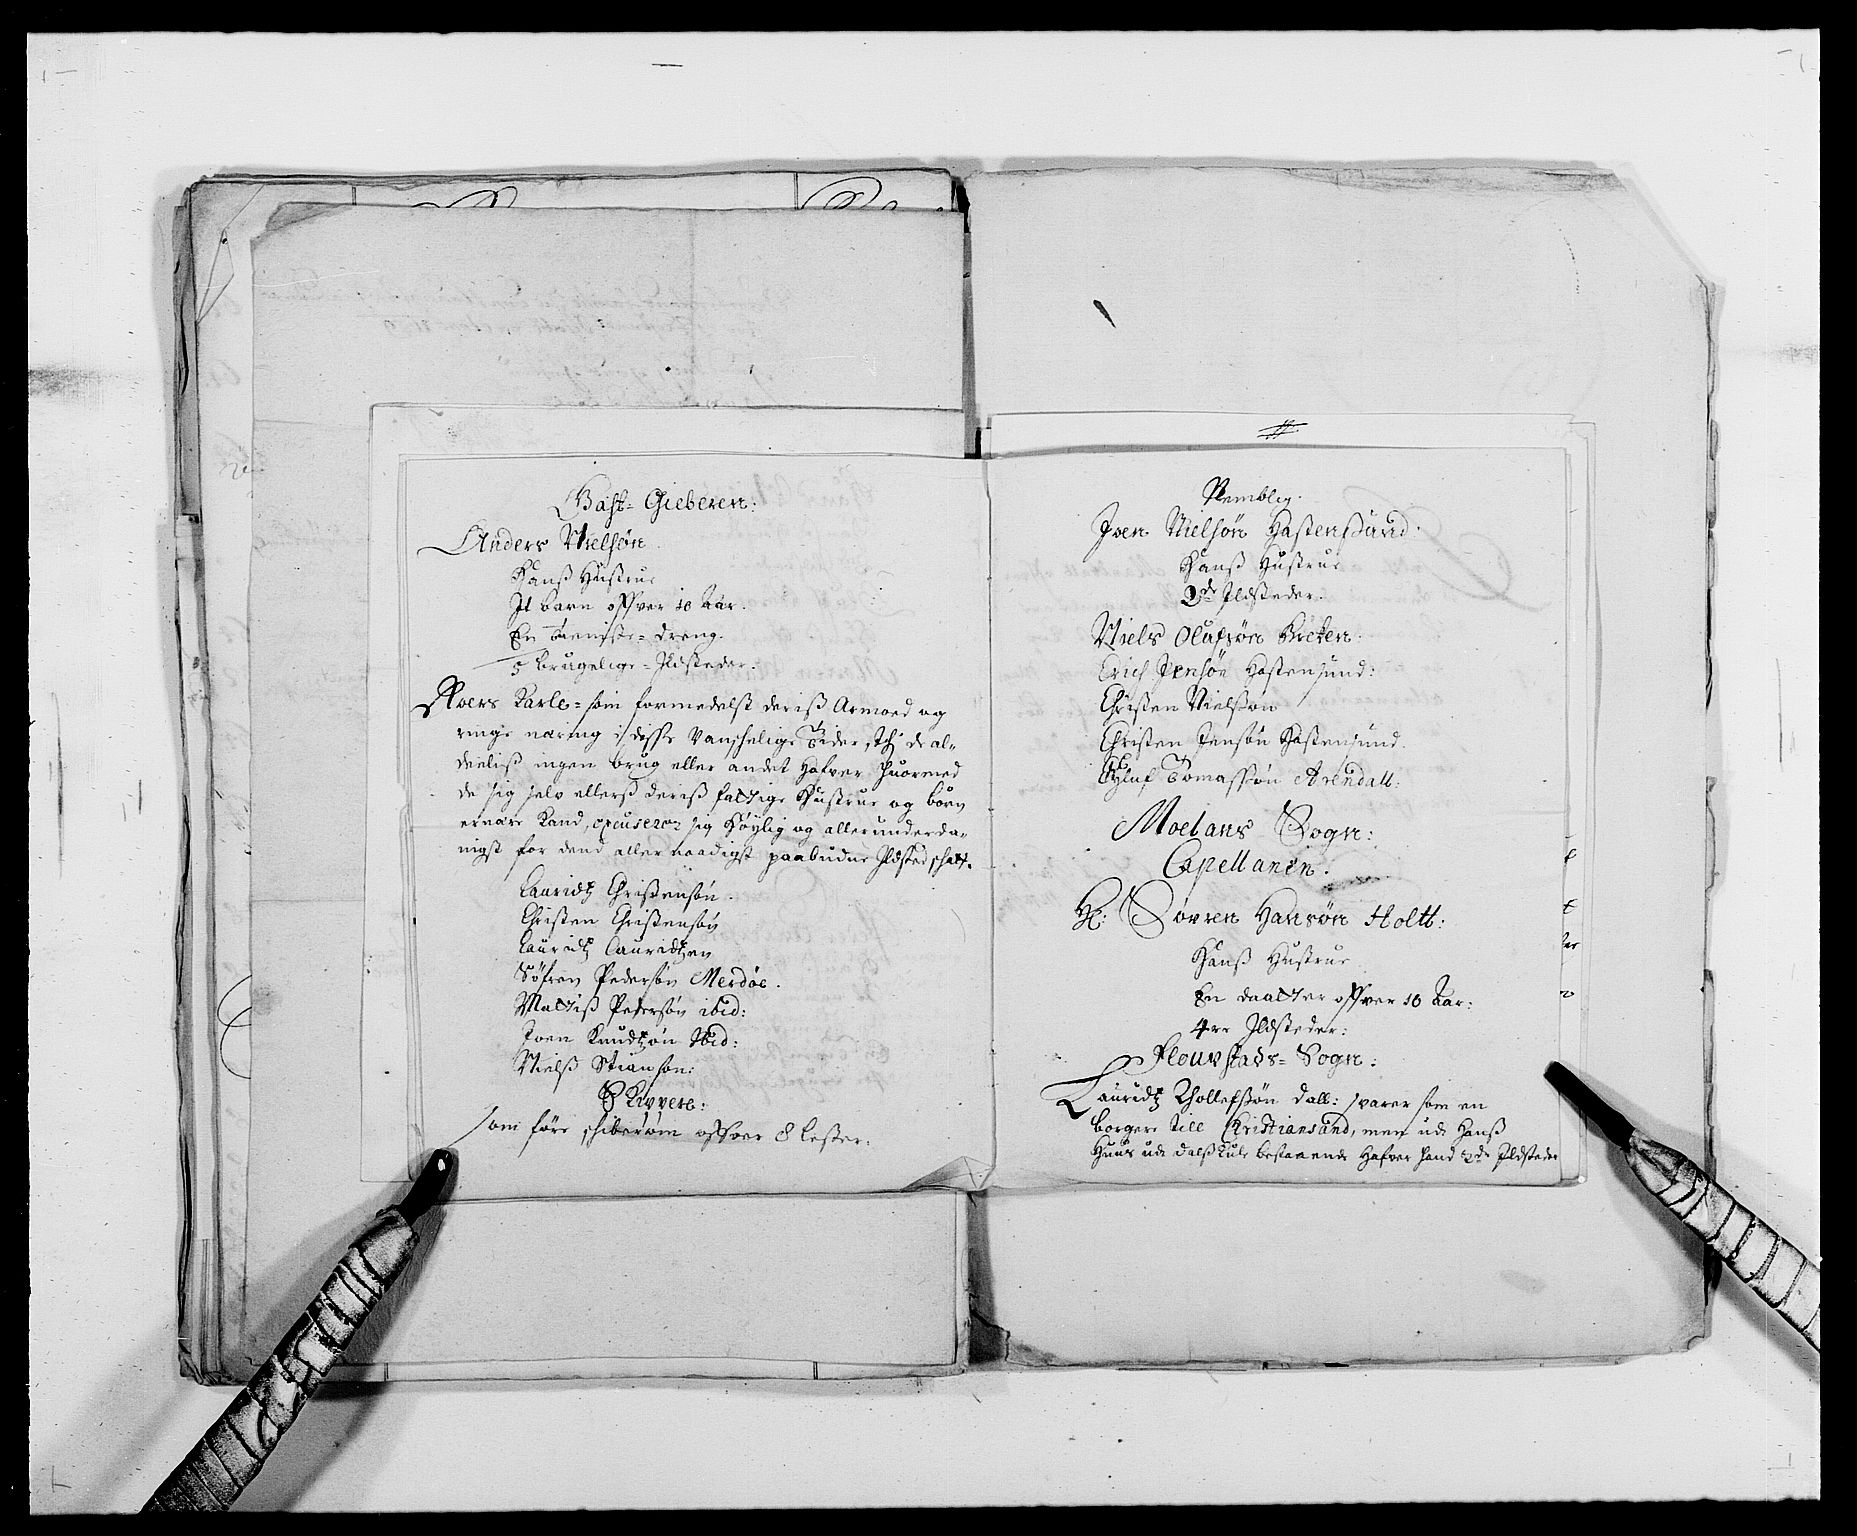 Gast-Gieberen:
Anders Nielsøn
Hanß Hustrue
It barn offver 10 Aar.
En tieniste-dreng.
5 brugelige-Ildsteder.
Roers Karle-som formedelst deriß Armoed og
ringe næring i disse Vanschelige Tider, de al-
deeliß ingen brug eller andet Hafver huormed
de sig selv ellerß deriß fattige Hustrue og børn
ernære Kand, excuserer sig Høylig og allerunderda-
nigst for dend allernaadigst paabudne Ildsted schatt.
Lauridtz Christensøn.
Christen Christensøn
Lauridtz Lauridtzen
Søfren Pedersøn Merdøe.
Mattiß Pedersøn ibid:
Joen Knudtzøn Ibid:
Nielß Stiansøn:
Skippere:
som føre schiberom offver 8 lester.
Nemblig.
Joen Nielsøn Hastensund:
Hanß Hustrue
2de Ildsteder.
Niels Olufsøn
Erich Jensøn Hastensund:
Christen Nielsøn
Christen Jensøn Hastensund.
Oluf Tomassøn Arendall:
Moelans Sogn:
Capellanen.
Hr: Søvren Hansøn Holtt:
Hanß Hustrue
En daatter offver 10 Aar:
4re Ildsteder:
Sogn:
Lauridtz Thollefsøn Dall: svarer som en
borgere till Christiansand, men udi Hanß
Huus udi Dalß Kule bestaaende Hafver Hand 2de Ildsteder